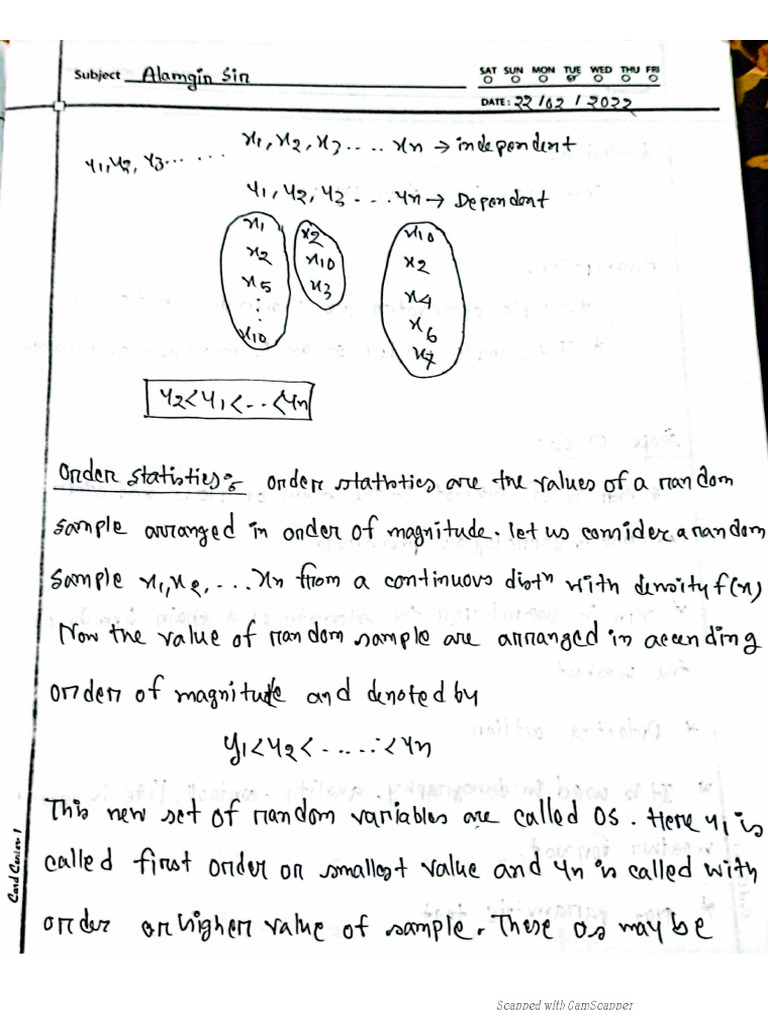 Subject Alamgin Sin
SAT SUN MON TUE WED THU FRI
DATE: 22/02/2022
x1, x2, x3 .... xn → independent
y1, y2, y3 ... ...
y1, y2, y3 ... yn → Dependent
x1
x2
x5
:
x10
x2
x10
x3
x10
x2
x4
x6
x7
y2<y1<..<yn
Order Statisties: order statistics are the values of a random
sample arranged in order of magnitude. let us consider a random
sample x1, x2, ... xn from a continuous distn with density f(x)
Now the value of random sample are arranged in acending
order of magnitude and denoted by
y1<y2< ..... <yn
This new set of random variables are called OS. Here y1 is
called first order or smallest value and yn is called with
order or higher value of sample. These os may be
Card Center 1
Scanned with CamScanner